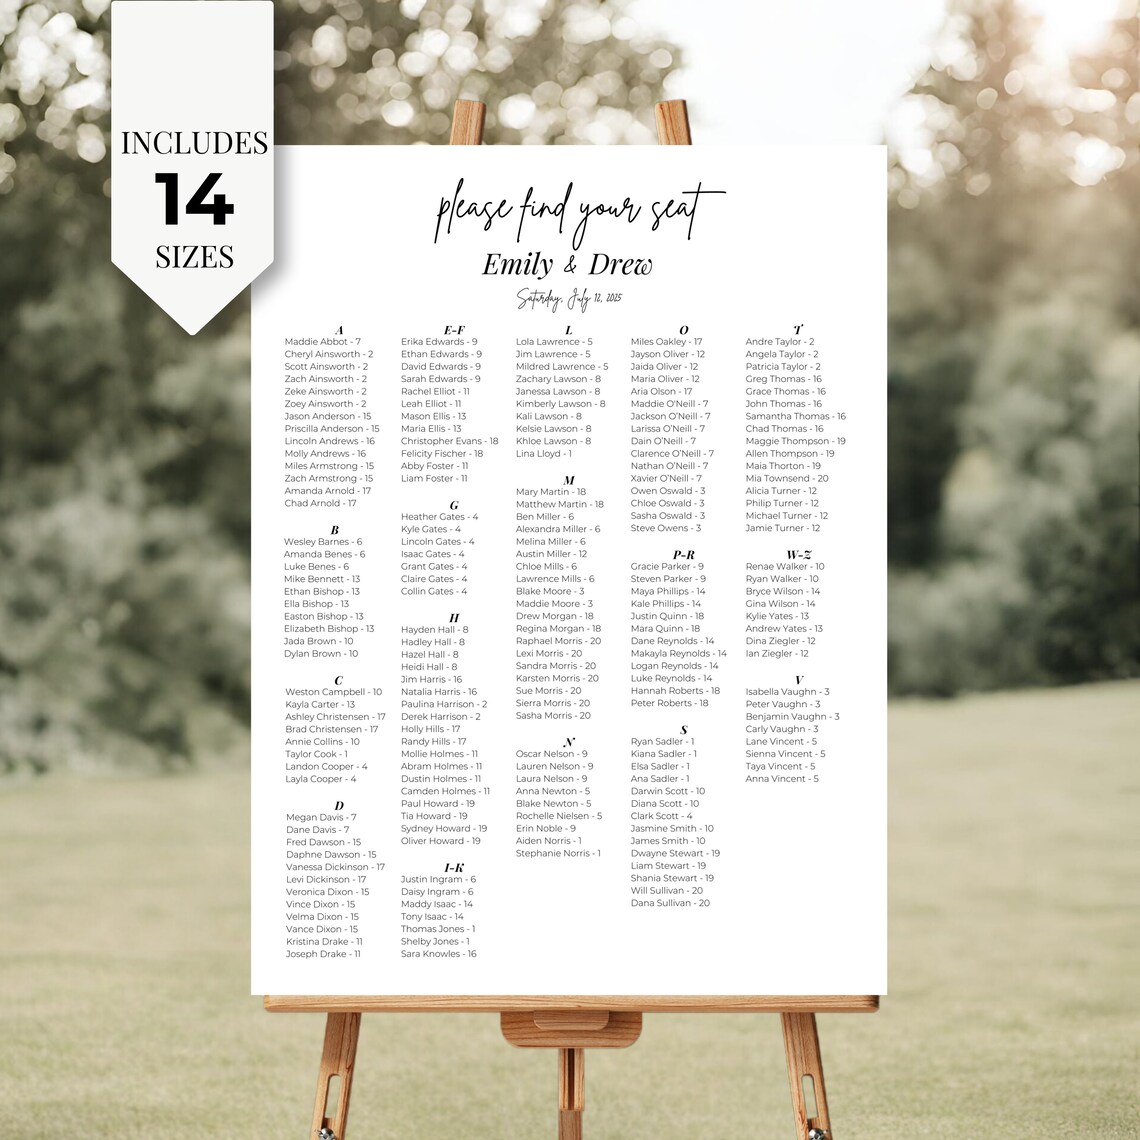 INCLUDES
14
SIZES
please find your seat
Emily & Drew
Saturday, July 12, 2025
A
Maddie Abbot - 7
Cheryl Ainsworth - 2
Scott Ainsworth - 2
Zach Ainsworth - 2
Zeke Ainsworth - 2
Zoey Ainsworth - 2
Jason Anderson - 15
Priscilla Anderson - 15
Lincoln Andrews - 16
Molly Andrews - 16
Miles Armstrong - 15
Zach Armstrong - 15
Amanda Arnold - 17
Chad Arnold - 17
B
Wesley Barnes - 6
Amanda Benes - 6
Luke Benes - 6
Mike Bennett - 13
Ethan Bishop - 13
Ella Bishop - 13
Easton Bishop - 13
Elizabeth Bishop - 13
Jada Brown - 10
Dylan Brown - 10
C
Weston Campbell - 10
Kayla Carter - 13
Ashley Christensen - 17
Brad Christensen - 17
Annie Collins - 10
Taylor Cook - 1
Landon Cooper - 4
Layla Cooper - 4
D
Megan Davis - 7
Dane Davis - 7
Fred Dawson - 15
Daphne Dawson - 15
Vanessa Dickinson - 17
Levi Dickinson - 17
Veronica Dixon - 15
Vince Dixon - 15
Velma Dixon - 15
Vance Dixon - 15
Kristina Drake - 11
Joseph Drake - 11
E-F
Erika Edwards - 9
Ethan Edwards - 9
David Edwards - 9
Sarah Edwards - 9
Rachel Elliot - 11
Leah Elliot - 11
Mason Ellis - 13
Maria Ellis - 13
Christopher Evans - 18
Felicity Fischer - 18
Abby Foster - 11
Liam Foster - 11
G
Heather Gates - 4
Kyle Gates - 4
Lincoln Gates - 4
Isaac Gates - 4
Grant Gates - 4
Claire Gates - 4
Collin Gates - 4
H
Hayden Hall - 8
Hadley Hall - 8
Hazel Hall - 8
Heidi Hall - 8
Jim Harris - 16
Natalia Harris - 16
Paulina Harrison - 2
Derek Harrison - 2
Holly Hills - 17
Randy Hills - 17
Mollie Holmes - 11
Abram Holmes - 11
Dustin Holmes - 11
Camden Holmes - 11
Paul Howard - 19
Tia Howard - 19
Sydney Howard - 19
Oliver Howard - 19
I-K
Justin Ingram - 6
Daisy Ingram - 6
Maddy Isaac - 14
Tony Isaac - 14
Thomas Jones - 1
Shelby Jones - 1
Sara Knowles - 16
L
Lola Lawrence - 5
Jim Lawrence - 5
Mildred Lawrence - 5
Zachary Lawson - 8
Janessa Lawson - 8
Kimberly Lawson - 8
Kali Lawson - 8
Kelsie Lawson - 8
Khloe Lawson - 8
Lina Lloyd - 1
M
Mary Martin - 18
Matthew Martin - 18
Ben Miller - 6
Alexandra Miller - 6
Melina Miller - 6
Austin Miller - 12
Chloe Mills - 6
Lawrence Mills - 6
Blake Moore - 3
Maddie Moore - 3
Drew Morgan - 18
Regina Morgan - 18
Raphael Morris - 20
Lexi Morris - 20
Sandra Morris - 20
Karsten Morris - 20
Sue Morris - 20
Sierra Morris - 20
Sasha Morris - 20
N
Oscar Nelson - 9
Lauren Nelson - 9
Laura Nelson - 9
Anna Newton - 5
Blake Newton - 5
Rochelle Nielsen - 5
Erin Noble - 9
Aiden Norris - 1
Stephanie Norris - 1
O
Miles Oakley - 17
Jayson Oliver - 12
Jaida Oliver - 12
Maria Oliver - 12
Aria Olson - 17
Maddie O'Neill - 7
Jackson O'Neill - 7
Larissa O'Neill - 7
Dain O'Neill - 7
Clarence O'Neill - 7
Nathan O'Neill - 7
Xavier O'Neill - 7
Owen Oswald - 3
Chloe Oswald - 3
Sasha Oswald - 3
Steve Owens - 3
P-R
Gracie Parker - 9
Steven Parker - 9
Maya Phillips - 14
Kale Phillips - 14
Justin Quinn - 18
Mara Quinn - 18
Dane Reynolds - 14
Makayla Reynolds - 14
Logan Reynolds - 14
Luke Reynolds - 14
Hannah Roberts - 18
Peter Roberts - 18
S
Ryan Sadler - 1
Kiana Sadler - 1
Elsa Sadler - 1
Ana Sadler - 1
Darwin Scott - 10
Diana Scott - 10
Clark Scott - 4
Jasmine Smith - 10
James Smith - 10
Dwayne Stewart - 19
Liam Stewart - 19
Shania Stewart - 19
Will Sullivan - 20
Dana Sullivan - 20
T
Andre Taylor - 2
Angela Taylor - 2
Patricia Taylor - 2
Greg Thomas - 16
Grace Thomas - 16
John Thomas - 16
Samantha Thomas - 16
Chad Thomas - 16
Maggie Thompson - 19
Allen Thompson - 19
Maia Thorton - 19
Mia Townsend - 20
Alicia Turner - 12
Philip Turner - 12
Michael Turner - 12
Jamie Turner - 12
W-Z
Renae Walker - 10
Ryan Walker - 10
Bryce Wilson - 14
Gina Wilson - 14
Kylie Yates - 13
Andrew Yates - 13
Dina Ziegler - 12
Ian Ziegler - 12
V
Isabella Vaughn - 3
Peter Vaughn - 3
Benjamin Vaughn - 3
Carly Vaughn - 3
Lane Vincent - 5
Sienna Vincent - 5
Taya Vincent - 5
Anna Vincent - 5